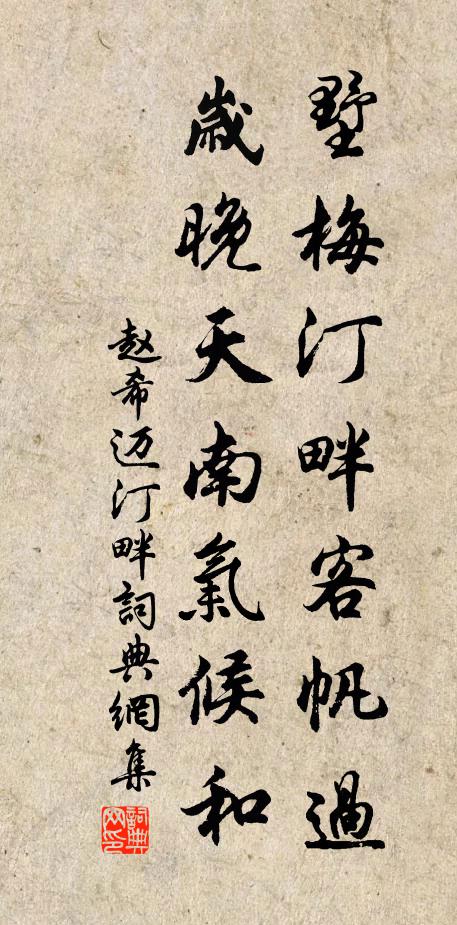 墅梅汀畔客帆過
歲晚天南氣候和
赵希迈汀畔詞典網集
詞典网印